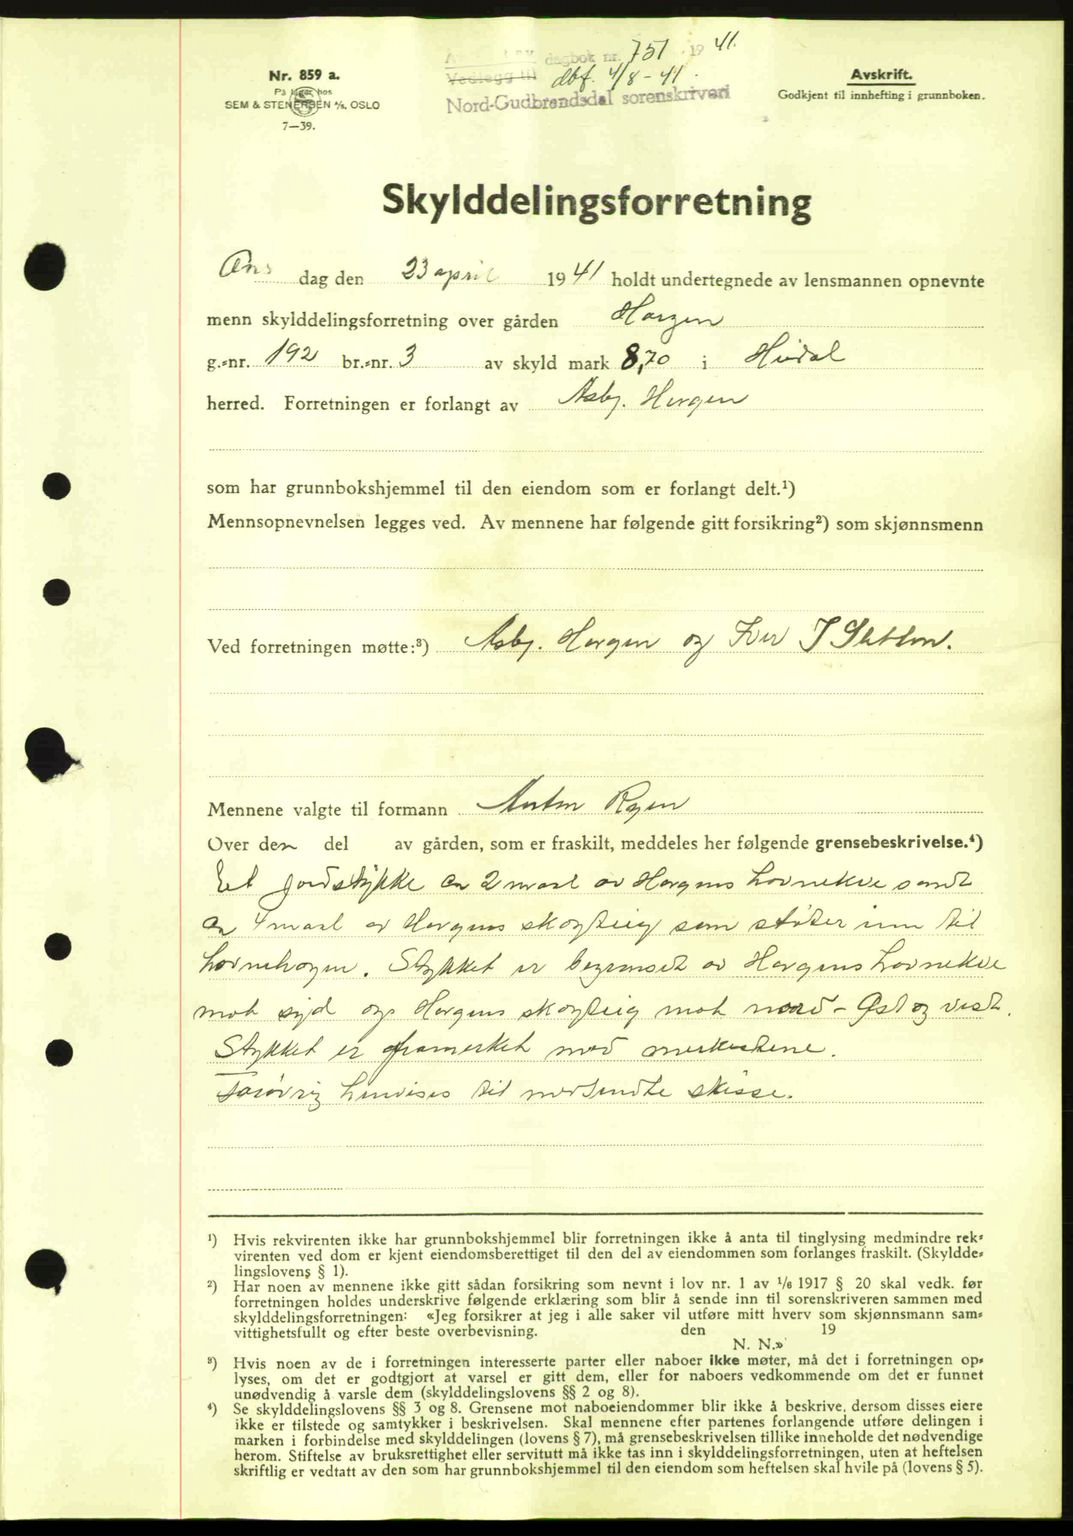 Nr. 859 a.
På lager hos
SEM & STENERSEN A/S. OSLO
7—39.
dagbok nr. 751 1941.
Vedlegg til dbf. 4/8-41.
Nord-Gudbrandsdal sorenskriveri
Avskrift.
Godkjent til innhefting i grunnboken.
Skylddelingsforretning
Ons dag den 23 april 1941 holdt undertegnede av lensmannen opnevnte
menn skylddelingsforretning over gården Horgen
g.=nr. 192 br.=nr. 3 av skyld mark 8,70 i Heidal
herred. Forretningen er forlangt av Asbj. Horgen
som har grunnbokshjemmel til den eiendom som er forlangt delt.¹)
Mennsopnevnelsen legges ved. Av mennene har følgende gitt forsikring²) som skjønnsmenn
Ved forretningen møtte:³) Asbj. Horgen og Iver J
Mennene valgte til formann Anton Ryen
Over den del av gården, som er fraskilt, meddeles her følgende grensebeskrivelse.⁴)
Et jordstykke ca 2 maal av Horgens havnekve samt
ca 4 maal av Horgens skogteig som støter inn til
havnehagen. Stykket er begrenset av Horgens havnekve
mot syd og Horgens skogteig mot nord - Øst og vest.
Stykket er opmerket med merkestene.
Forøvrig henvises til medsendte skisse.
¹) Hvis rekvirenten ikke har grunnbokshjemmel blir forretningen ikke å anta til tinglysing medmindre rek=
virenten ved dom er kjent eiendomsberettiget til den del av eiendommen som forlanges fraskilt. (Skyldde=
lingslovens § 1).
²) Har noen av mennene ikke gitt sådan forsikring som nevnt i lov nr. 1 av 1/6 1917 § 20 skal vedk. før
forretningen holdes underskrive følgende erklæring som blir å sende inn til sorenskriveren sammen med
skylddelingsforretningen: «Jeg forsikrer at jeg i alle saker vil utføre mitt hverv som skjønnsmann sam=
vittighetsfullt og efter beste overbevisning. den 19
N. N.»
³) Hvis noen av de i forretningen interesserte parter eller naboer ikke møter, må det i forretningen op=
lyses, om det er godtgjort at varsel er gitt dem, eller for naboers vedkommende om det er funnet
unødvendig å varsle dem (skylddelingslovens §§ 2 og 8).
⁴) Se skylddelingslovens §§ 3 og 8. Grensene mot naboeiendommer blir ikke å beskrive, dersom disses eiere
ikke er tilstede og samtykker i beskrivelsen. Skal mennene efter partenes forlangende utføre delingen i
marken i forbindelse med skylddelingen (lovens § 7), må grensebeskrivelsen tillike inneholde det nødvendige
herom. Stiftelse av bruksrettighet eller servitutt må ikke tas inn i skylddelingsforretningen, uten at heftelsen
skriftlig er vedtatt av den som har grunnbokshjemmel til den eiendom som heftelsen skal hvile på (lovens § 5).